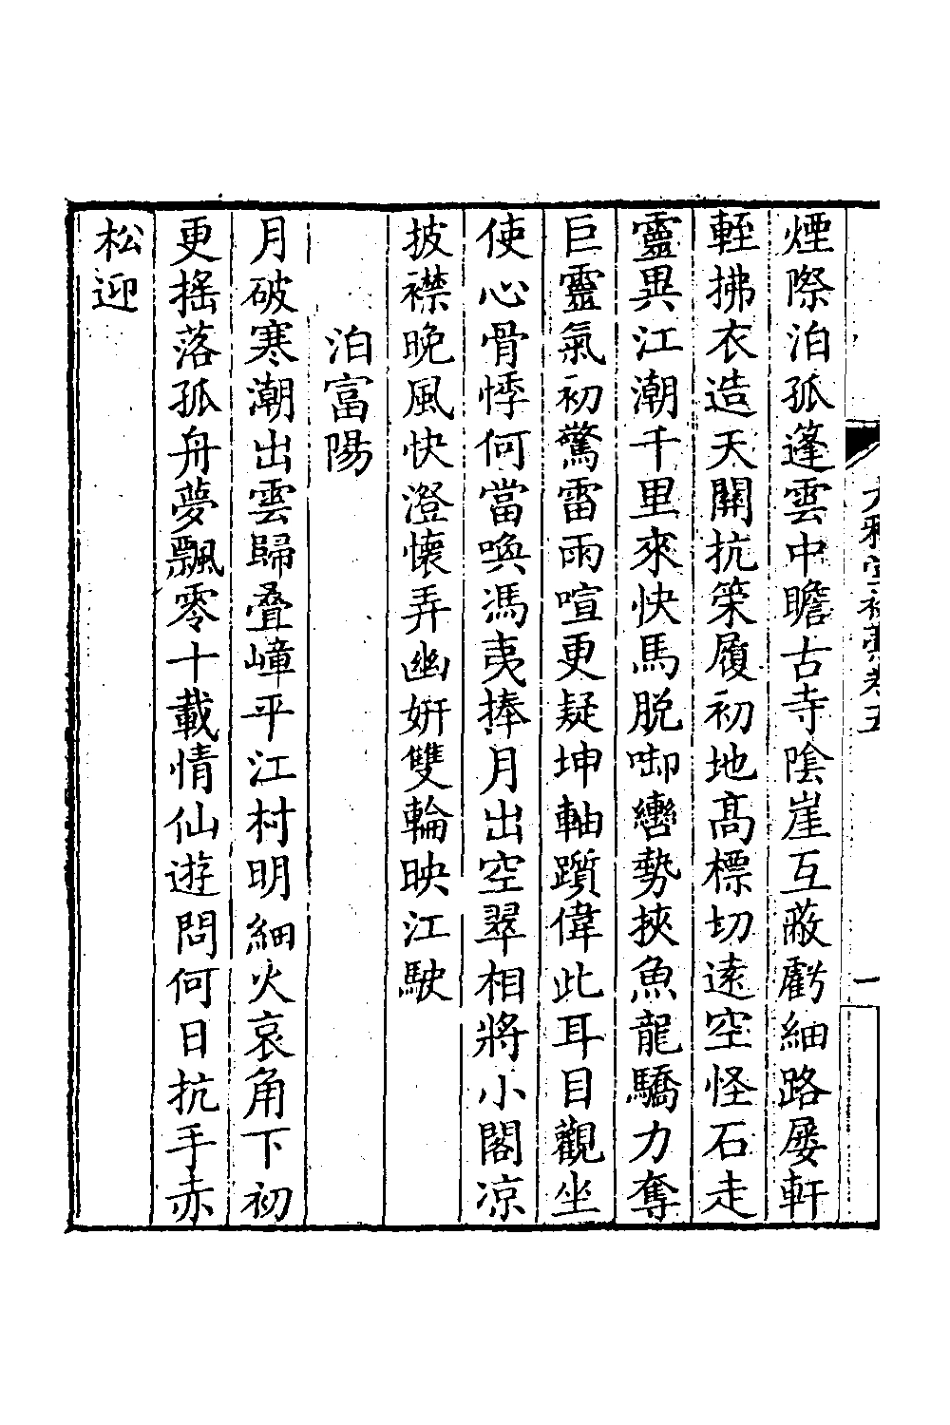 大雅堂初藁卷五
一
煙際泊孤篷雲中瞻古寺陰崖互蔽虧細路屡軒
輊拂衣造天關抗策履初地高標切遠空怪石走
靈異江潮千里來快馬脱啣轡勢挾魚龍驕力奪
巨靈氣初驚雷雨喧更疑坤軸躓偉此耳目觀坐
使心骨悸何當喚馮夷捧月出空翠相將小閣凉
披襟晚風快澄懷弄幽妍雙輪映江駛
泊富陽
月破寒潮出雲歸叠嶂平江村明細火哀角下初
更搖落孤舟夢飄零十載情仙遊問何日抗手赤
松迎